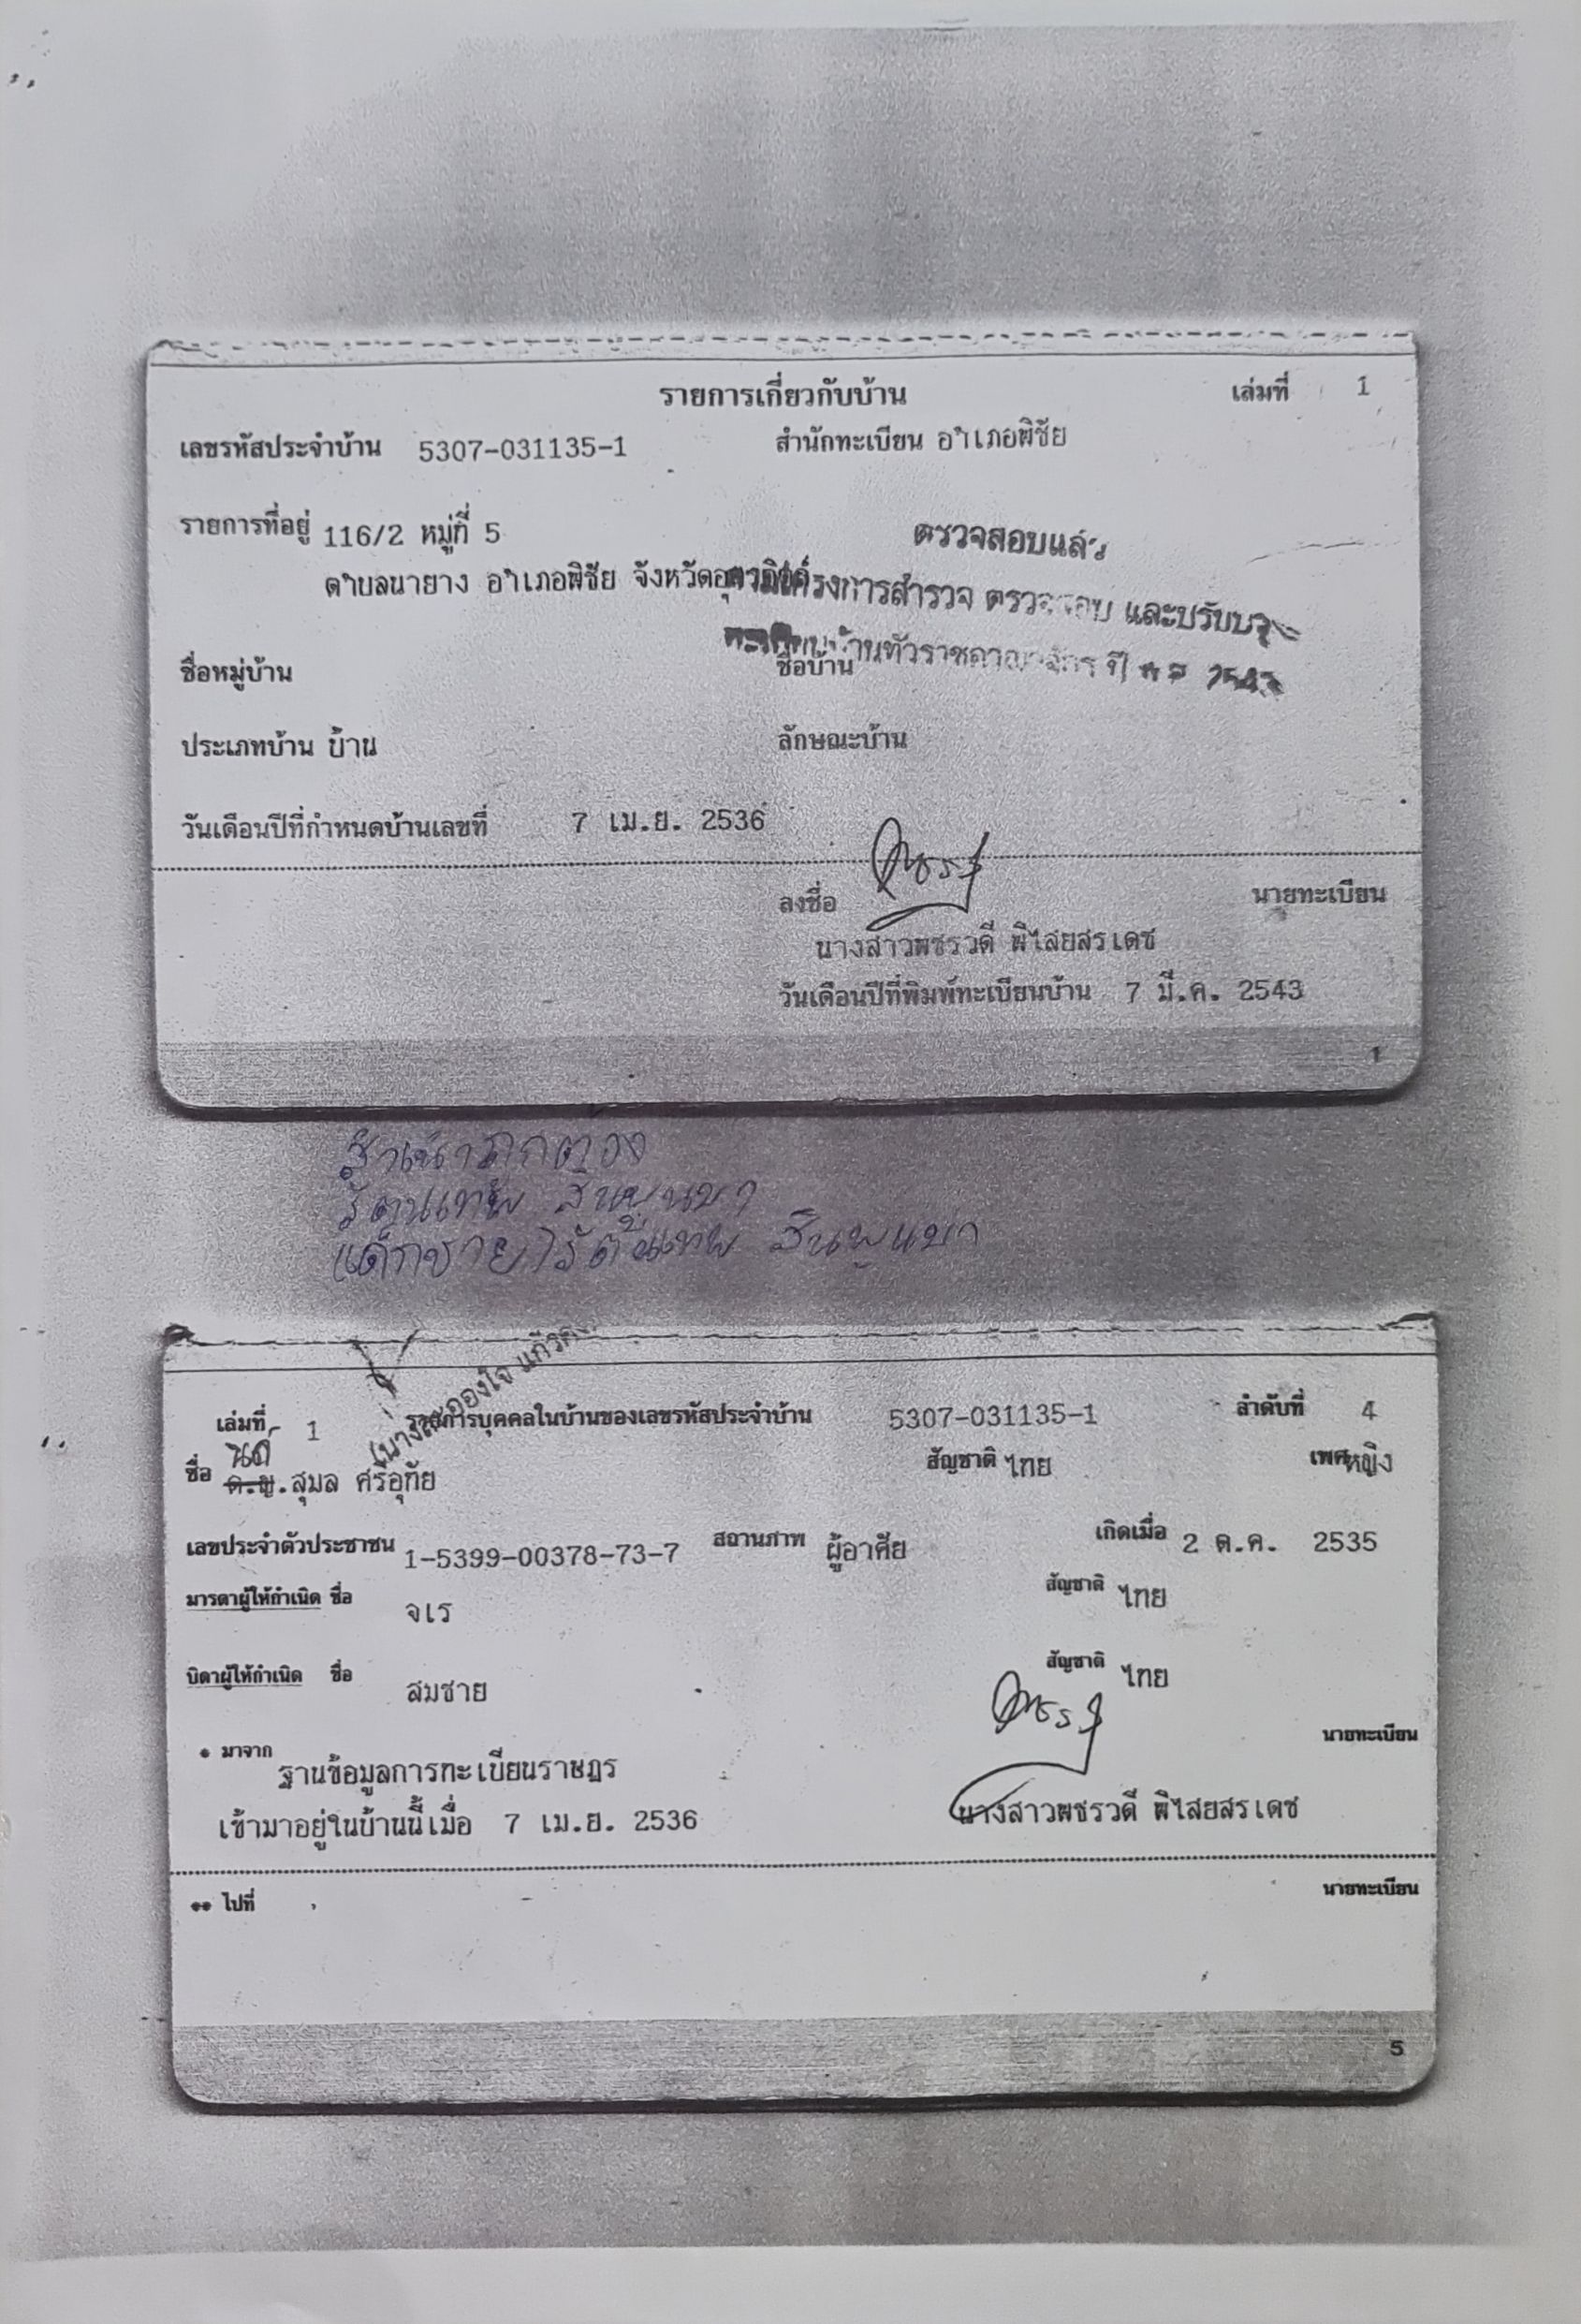 รายการเกี่ยวกับบ้าน เล่มที่ 1
เลขรหัสประจำบ้าน 5307-031135-1 สำนักทะเบียน อำเภอพิชัย
รายการที่อยู่ 116/2 หมู่ที่ 5
ตรวจสอบแล้ว
ตำบลนายาง อำเภอพิชัย จังหวัดอุตรดิตถ์
ตามโครงการสำรวจ ตรวจสอบ และปรับปรุง
ทะเบียนบ้านทั่วราชอาณาจักร ปี พ.ศ. 2543
ชื่อหมู่บ้าน ชื่อบ้าน
ประเภทบ้าน บ้าน ลักษณะบ้าน
วันเดือนปีที่กำหนดบ้านเลขที่ 7 เม.ย. 2536
ลงชื่อ นายทะเบียน
นางสาวพชรวดี พิไสยสรเดช
วันเดือนปีที่พิมพ์ทะเบียนบ้าน 7 มี.ค. 2543
1
สำเนาถูกต้อง
เด็กชาย
เล่มที่ 1 รายการบุคคลในบ้านของเลขรหัสประจำบ้าน 5307-031135-1 ลำดับที่ 4
ชื่อ ด.ญ.สุมล ศรีอุทัย สัญชาติ ไทย เพศ หญิง
เลขประจำตัวประชาชน 1-5399-00378-73-7 สถานภาพ ผู้อาศัย เกิดเมื่อ 2 ต.ค. 2535
มารดาผู้ให้กำเนิด ชื่อ จเร สัญชาติ ไทย
บิดาผู้ให้กำเนิด ชื่อ สมชาย สัญชาติ ไทย
* มาจาก ฐานข้อมูลการทะเบียนราษฎร นายทะเบียน
เข้ามาอยู่ในบ้านนี้เมื่อ 7 เม.ย. 2536 นางสาวพชรวดี พิไสยสรเดช
** ไปที่ นายทะเบียน
5